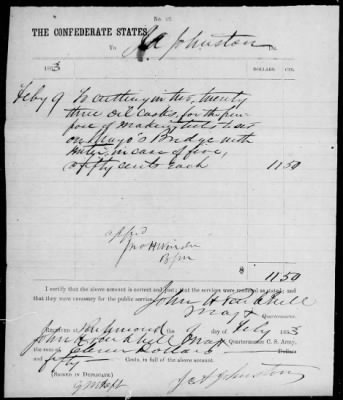 No. 22
THE CONFEDERATE STATES,
To J A Johnston Dr.
1863 DOLLARS CTS.
Feby 9 To cutting in two, twenty
three Oil Casks, for the pur
pose of making tubs to set
on Mayo's Bridge with
Water, in case of fire,
@ fifty cents each 11 50
appd
Jno H Winder
B Gen
$ 11 50
I certify that the above account is correct and just; that the services were rendered as stated; and
that they were necessary for the public service.
John H Parkhill
Maj &
Quartermaster.
Received at Richmond the 9 of Feby 1863
John H Parkhill Maj & Quartermaster C. S. Army,
the sum of Eleven Dollars Dollars
and fifty Cents, in full of the above account.
(SIGNED IN DUPLICATE)
J A Johnston